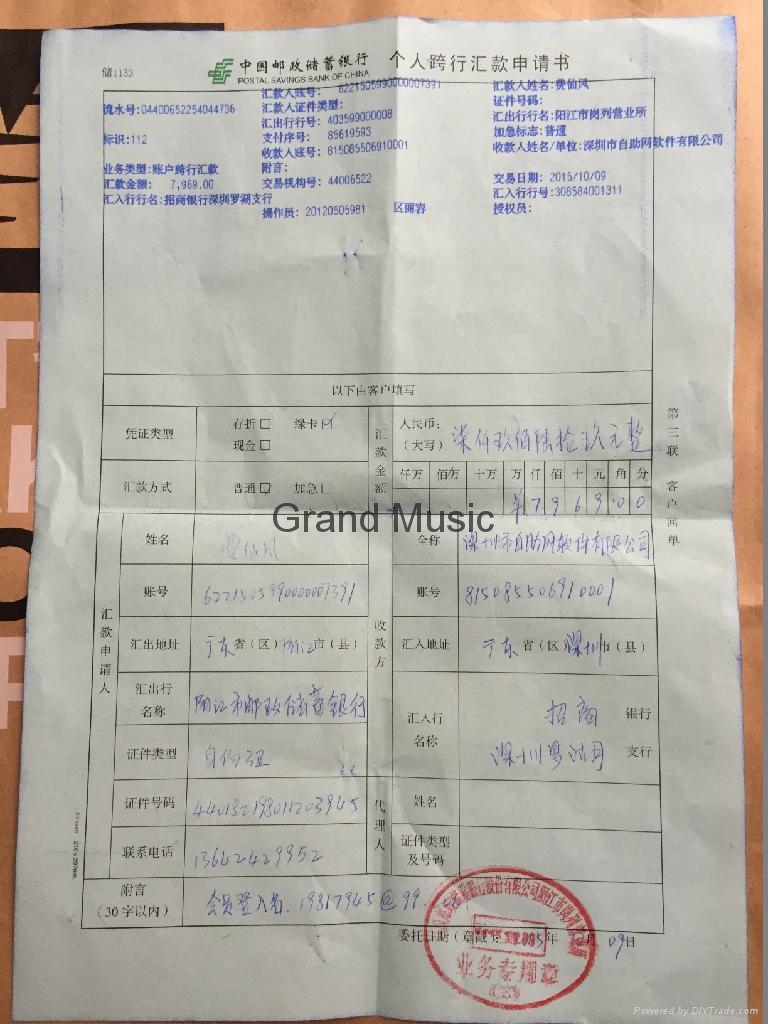 储1133
中国邮政储蓄银行 个人跨行汇款申请书
POSTAL SAVINGS BANK OF CHINA
汇款人账号: 6221505990000007391 汇款人姓名:费仙凤
流水号:04400652254044736 汇款人证件类型: 证件号码:
汇出行行号: 403599000008 汇出行行名:阳江市岗列营业所
标识:112 支付序号: 85619593 加急标志:普通
收款人账号: 815085506910001 收款人姓名/单位:深圳市自助网软件有限公司
业务类型:账户跨行汇款 附言:
汇款金额: 7,969.00 交易机构号: 44006522 交易日期: 2015/10/09
汇入行行名:招商银行深圳罗湖支行 汇入行行号:308584001311
操作员: 20120505981 区丽容 授权员:
以下由客户填写
凭证类型 存折□ 绿卡☑ 现金□
汇款金额 人民币: (大写) 柒仟玖佰陆拾玖元整
汇款方式 普通☑ 加急□
仟万 佰万 十万 万 仟 佰 十 元 角 分
¥ 7 9 6 9 0 0
Grand Music
汇款申请人 姓名 费仙凤
收款方 全称 深圳市自助网软件有限公司
账号 6221505990000007391 账号 815085506910001
汇出地址 广东省(区)阳江市(县) 汇入地址 广东省(区)深圳市(县)
汇出行名称 阳江市邮政储蓄银行 汇入行名称 招商 银行
深圳罗湖 支行
证件类型 身份证
证件号码
代理人 姓名
联系电话 13642429952 证件类型及号码
附言 (30字以内) 会员登入名.19817945@99.
委托日期(
年 月 09日
业务专用章
第三联 客户回单
Powered by DIYTrade.com